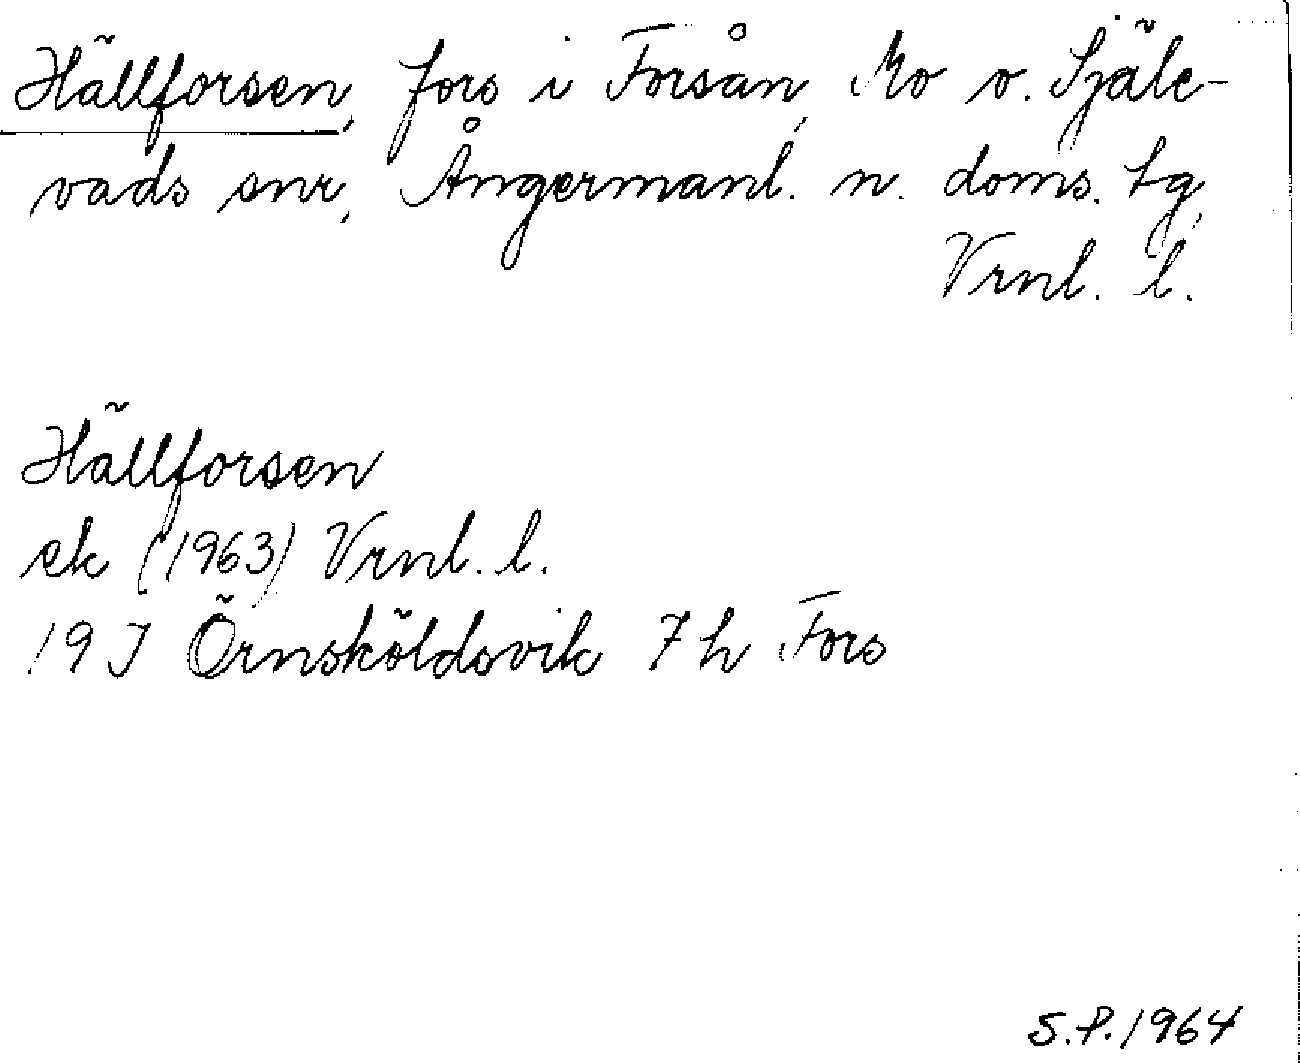 Hällforsen, fors i Forsån, Mo o. Själe-
vads snr, Ångermanl. n. doms. tg,
Vrnl. l.
Hällforsen
ek (1963) Vrnl. l.
19 J Örnsköldsvik 7 h Fors
S.P. 1964